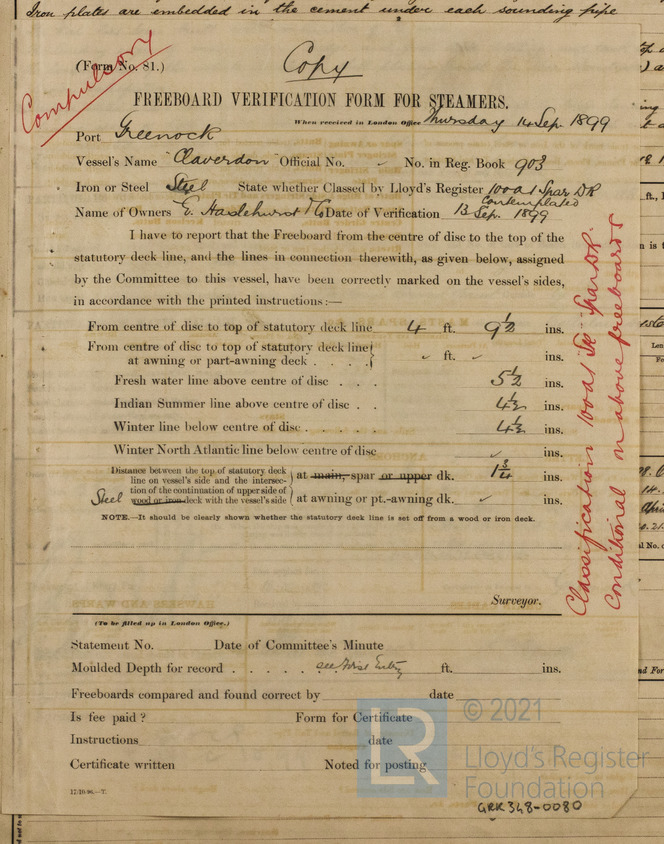 Iron plates are embedded in the cement under each sounding pipe
(Form No. 81.)
Copy
Compulsory
FREEBOARD VERIFICATION FORM FOR STEAMERS.
When received in London Office Thursday 14 Sep. 1899
Port Greenock
Vessel's Name Claverdon Official No. No. in Reg. Book 903
Iron or Steel Steel State whether Classed by Lloyd's Register 100a1 Spar DR
contemplated
Name of Owners E. Haslehurst & Co Date of Verification 13 Sep. 1899
I have to report that the Freeboard from the centre of disc to the top of the
statutory deck line, and the lines in connection therewith, as given below, assigned
by the Committee to this vessel, have been correctly marked on the vessel's sides,
in accordance with the printed instructions:—
From centre of disc to top of statutory deck line 4 ft. 9½ ins.
From centre of disc to top of statutory deck line
at awning or part-awning deck . . . . ft. ins.
Fresh water line above centre of disc . . 5½ ins.
Indian Summer line above centre of disc . . 4½ ins.
Winter line below centre of disc . . . . . 4½ ins.
Winter North Atlantic line below centre of disc ins.
Distance between the top of statutory deck
line on vessel's side and the intersec-
tion of the continuation of upper side of
Steel wood or iron deck with the vessel's side
at main, spar or upper dk. 1¾ ins.
at awning or pt.-awning dk. ins.
NOTE.—It should be clearly shown whether the statutory deck line is set off from a wood or iron deck.
Surveyor.
(To be filled up in London Office.)
Statement No. Date of Committee's Minute
Moulded Depth for record . . . . . . see First Entry ft. ins.
Freeboards compared and found correct by date
Is fee paid? Form for Certificate
Instructions date
Certificate written Noted for posting
17/10/98.—T.
Classification 100a1 Spar DR
Conditional on above freeboards
LR
© 2021
Lloyd's Register
Foundation
GRK348-0080